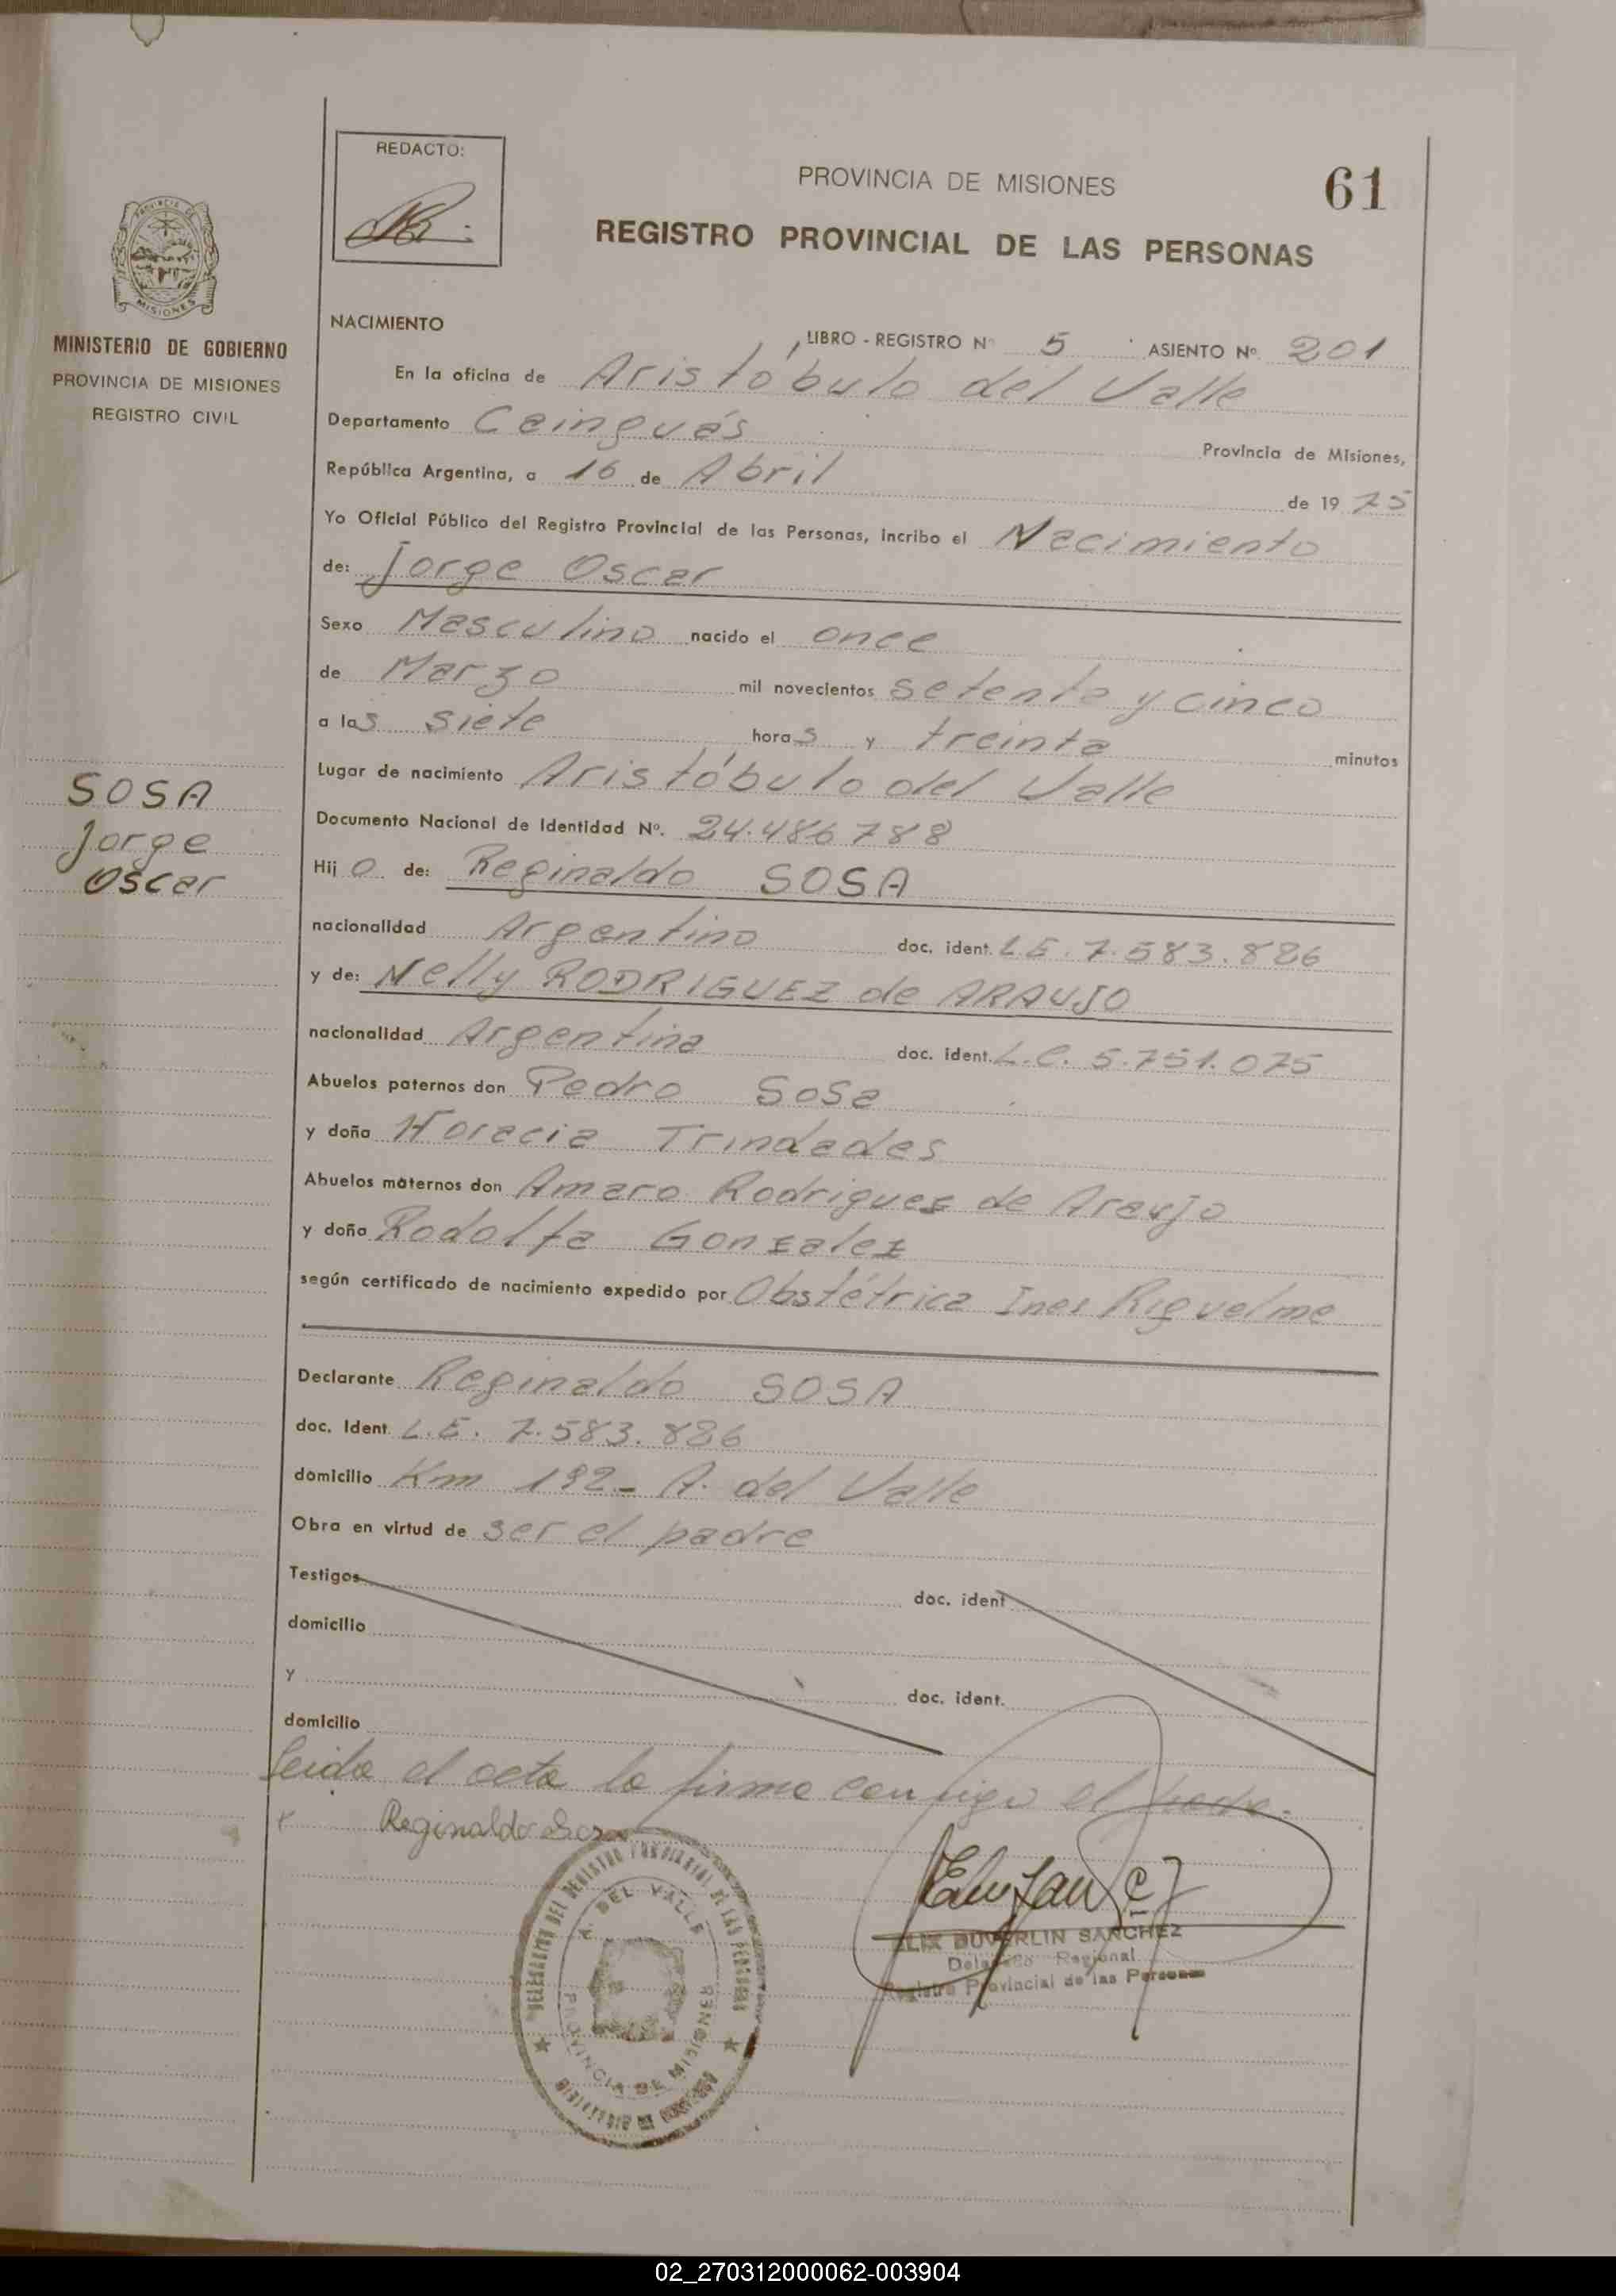 REDACTO:
PROVINCIA DE MISIONES
61
REGISTRO PROVINCIAL DE LAS PERSONAS
PROVINCIA DE
MISIONES
MINISTERIO DE GOBIERNO
PROVINCIA DE MISIONES
REGISTRO CIVIL
NACIMIENTO
LIBRO - REGISTRO Nº 5 ASIENTO Nº 201
En la oficina de Aristóbulo del Valle
Departamento Caingués Provincia de Misiones,
República Argentina, a 16 de Abril de 1975
Yo Oficial Público del Registro Provincial de las Personas, incribo el Nacimiento
de: Jorge Oscar
Sexo Masculino nacido el once
de Marzo mil novecientos setenta y cinco
a las siete horas y treinta minutos
Lugar de nacimiento Aristóbulo del Valle
SOSA
Jorge
Oscar
Documento Nacional de Identidad Nº. 24.486788
Hijo de: Reginaldo SOSA
nacionalidad Argentino doc. ident. L.E. 7.583.886
y de: Nelly RODRIGUEZ de ARAUJO
nacionalidad Argentina doc. ident. L.C. 5.751.075
Abuelos paternos don Pedro Sosa
y doña Horacia Trindades
Abuelos maternos don Amaro Rodrigues de Araujo
y doña Rodolfa Gonzalez
según certificado de nacimiento expedido por Obstétrica Ines Riquelme
Declarante Reginaldo SOSA
doc. Ident L.E. 7.583.886
domicilio Km 192- A. del Valle
Obra en virtud de ser el padre
Testigos doc. ident
domicilio
y doc. ident.
domicilio
Leida el acta la firma conmigo el padre.
Reginaldo Sosa
DELEGACION DEL REGISTRO PROVINCIAL DE LAS PERSONAS
A. DEL VALLE
PROVINCIA DE MISIONES
DUVERLIN SANCHEZ
Delegado Regional
Registro Provincial de las Personas
02_270312000062-003904